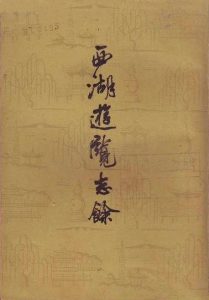 西湖遊覽志餘